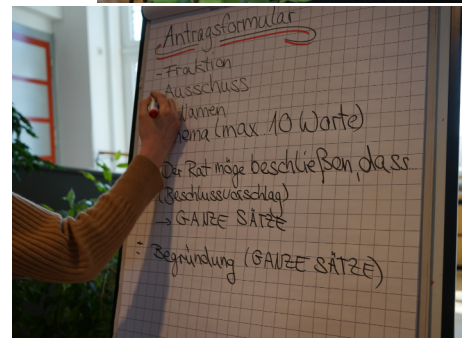 Antragsformular
- Fraktion
Ausschuss
Namen
Thema (max 10 Worte)
Der Rat möge beschließen, dass...
(Beschlussvorschlag)
→ GANZE SÄTZE
- Begründung (GANZE SÄTZE)